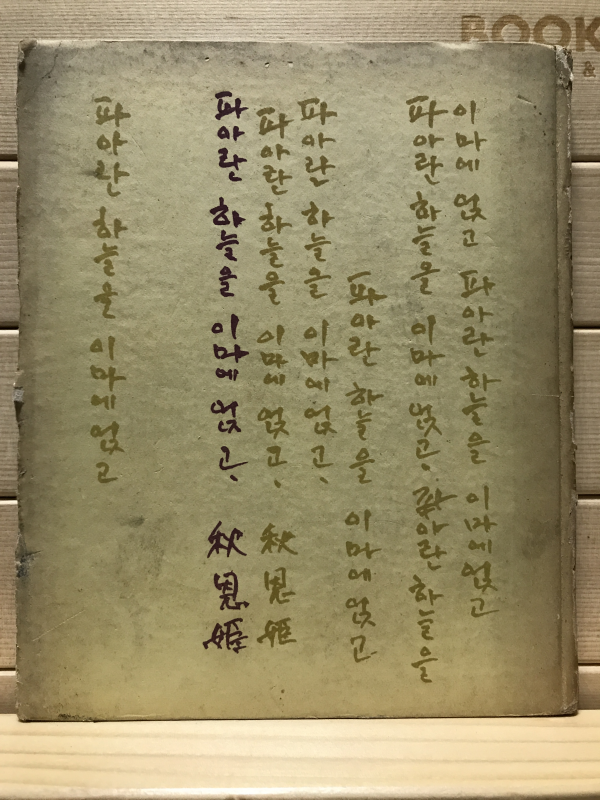 BOOK
&
이마에 얹고 파아란 하늘을 이마에 얹고
파아란 하늘을 이마에 얹고, 파아란 하늘을
파아란 하늘을 이마에 얹고
파아란 하늘을 이마에 얹고,
파아란 하늘을 이마에 얹고, 秋恩姬
파아란 하늘을 이마에 얹고, 秋恩姬
파아란 하늘을 이마에 얹고